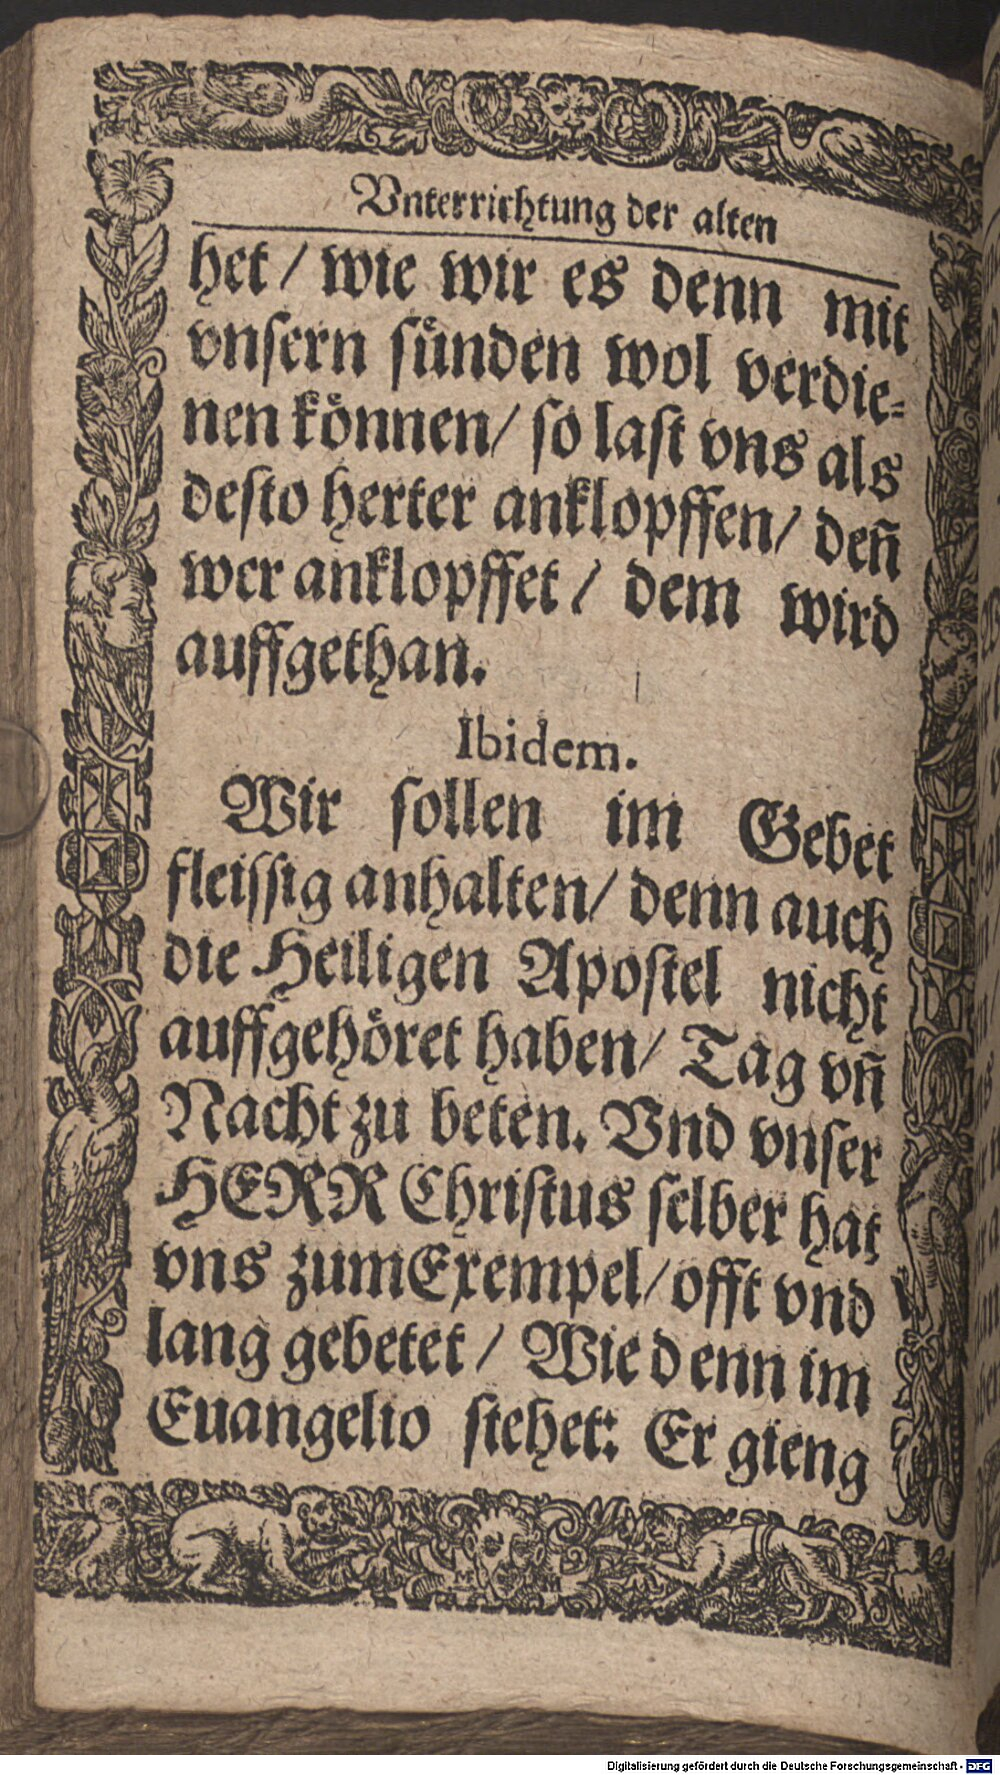 Vnterrichtung der alten
het / wie wir es denn mit
vnsern suͤnden wol verdie⸗
nen koͤnnen / so last vns als
desto herter anklopffen / deñ
wer anklopffet / dem wird
auffgethan.
Ibidem.
Wir sollen im Gebet
fleissig anhalten / denn auch
die Heiligen Apostel nicht
auffgehoͤret haben / Tag vñ
Nacht zu beten. Vnd vnser
HERR Christus selber hat
vns zum Exempel / offt vnd
lang gebetet / Wie denn im
Euangelio stehet: Er gieng
Digitalisierung gefördert durch die Deutsche Forschungsgemeinschaft - DFG